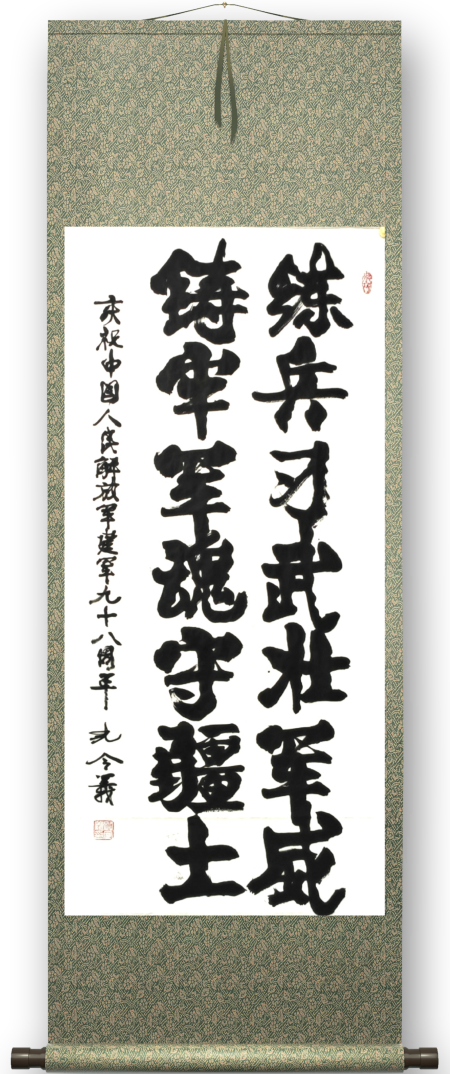 练兵习武壮军威
铸牢军魂守疆土
庆祝中国人民解放军建军九十八周年
令义